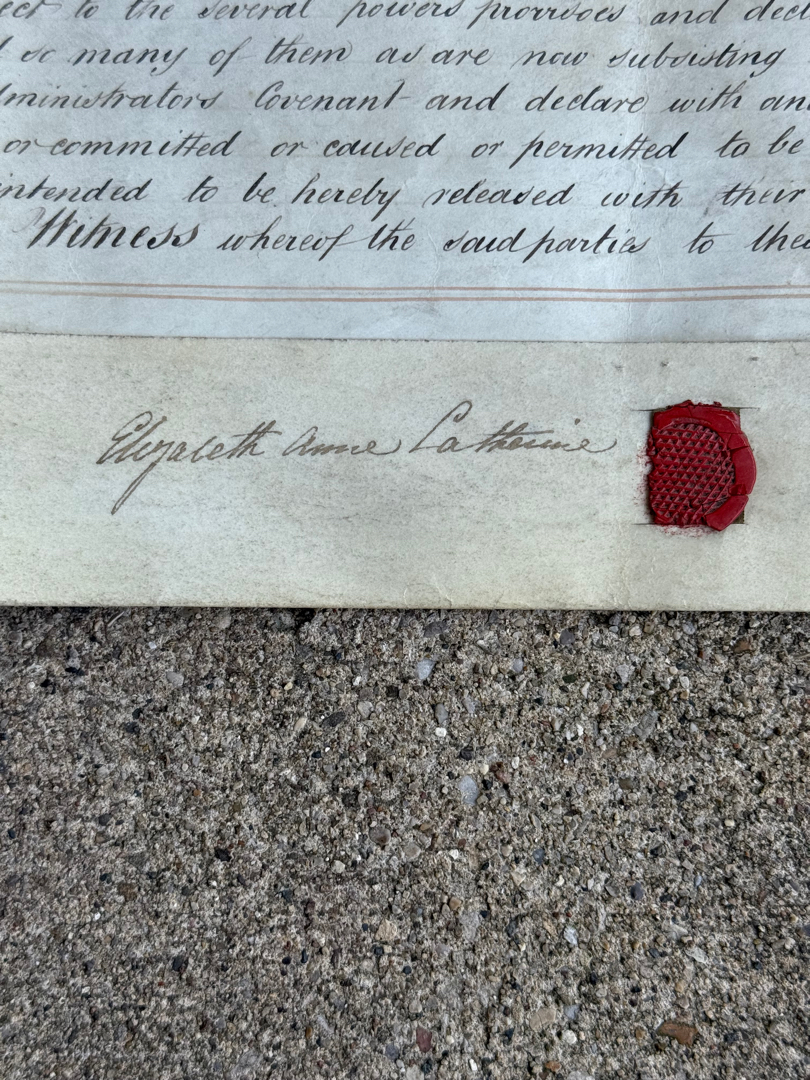 to the several powers provisoes and
so many of them as are now subsisting
Covenant and declare with
or committed or caused or permitted to be
intended to be hereby released with their
Witness whereof the said parties to
Elizabeth Anne Catherine